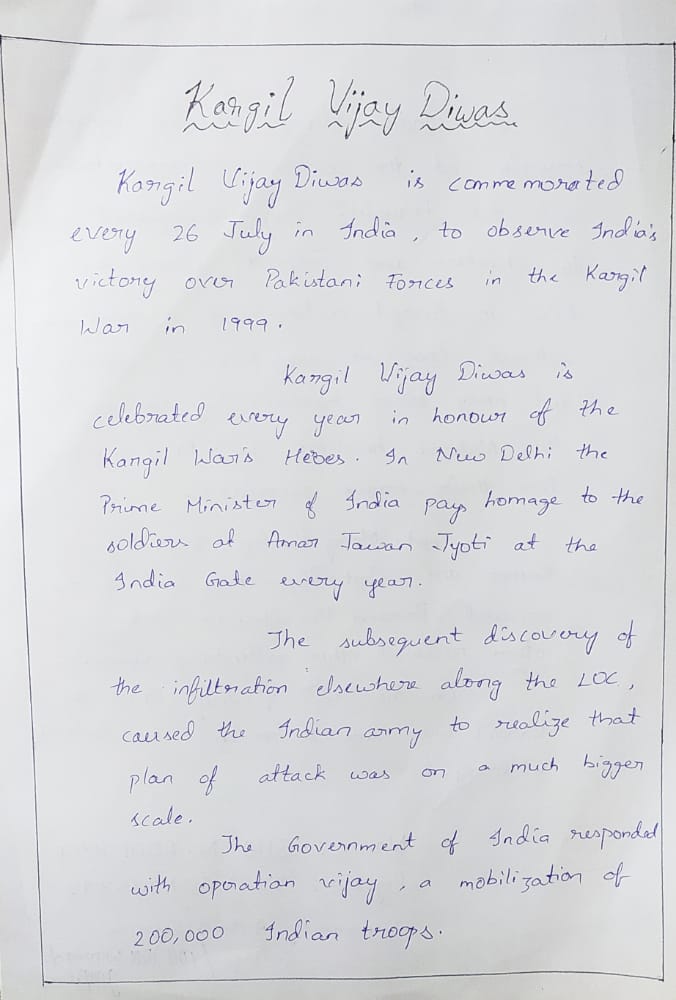 Kargil Vijay Diwas
Kargil Vijay Diwas is commemorated
every 26 July in India, to observe India's
victory over Pakistani Forces in the Kargil
War in 1999.
Kargil Vijay Diwas is
celebrated every year in honour of the
Kargil War's Heroes. In New Delhi the
Prime Minister of India pays homage to the
soldiers at Amar Jawan Jyoti at the
India Gate every year.
The subsequent discovery of
the infiltration elsewhere along the LOC,
caused the Indian army to realize that
plan of attack was on a much bigger
scale.
The Government of India responded
with operation vijay, a mobilization of
200,000 Indian troops.